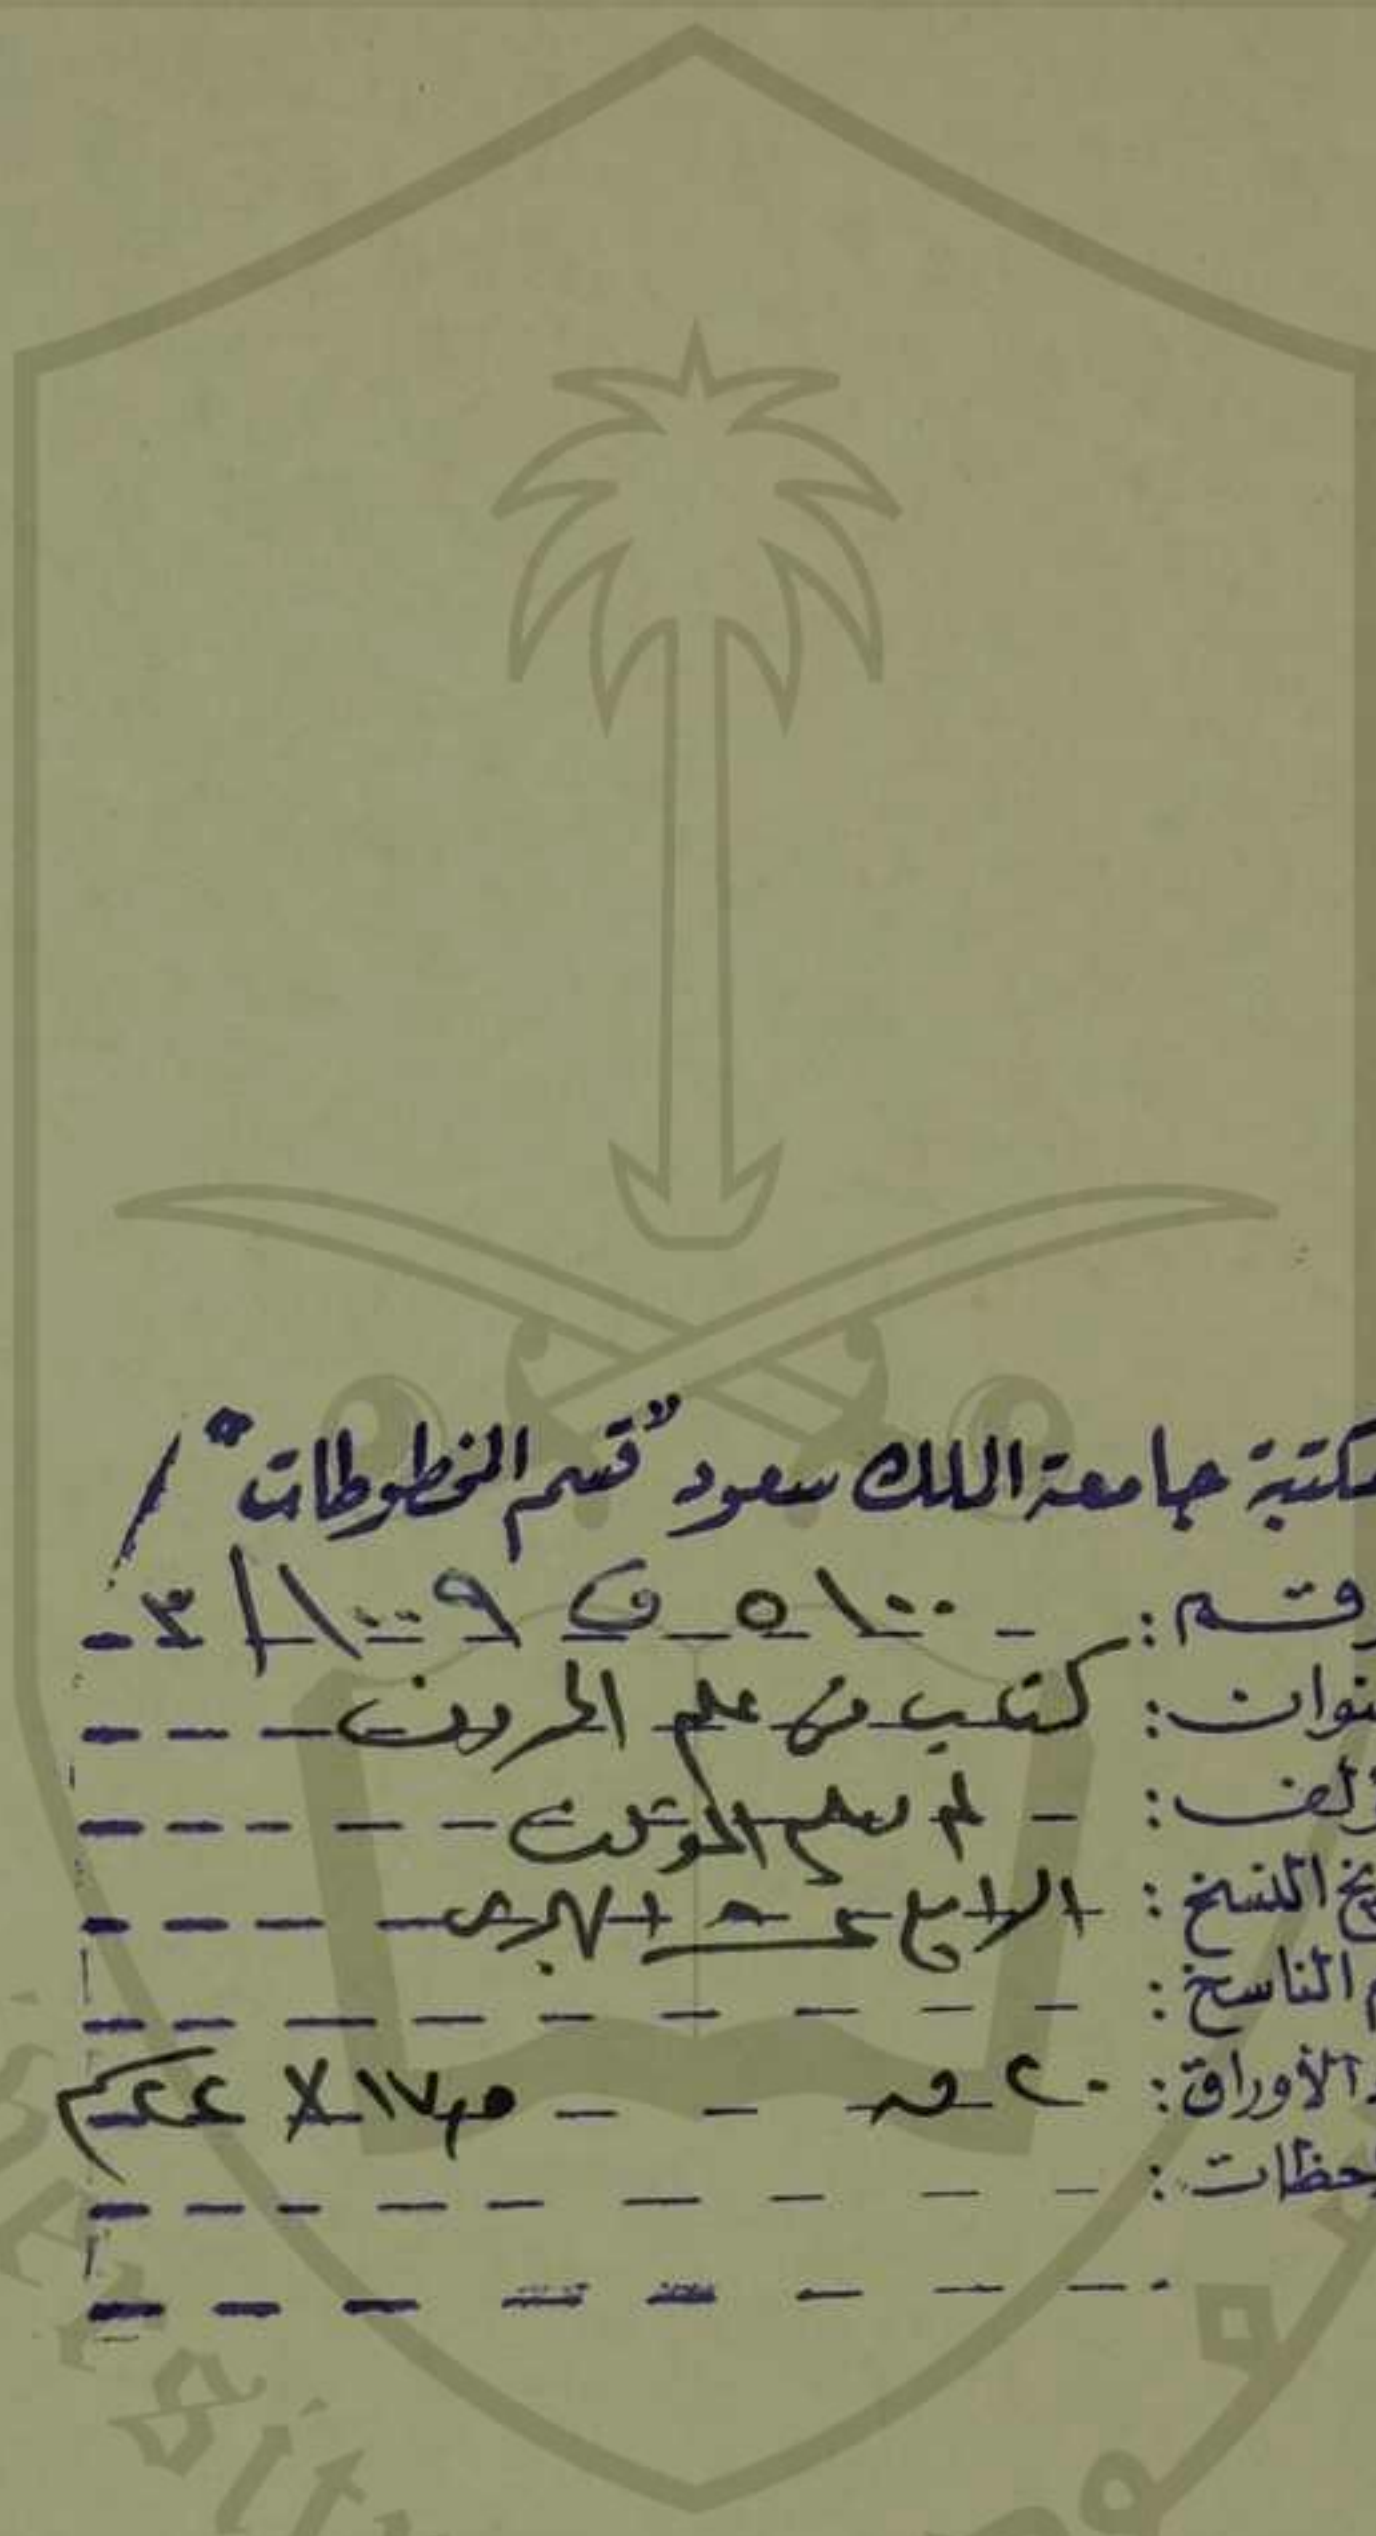 مكتبة جامعة الملك سعود "قسم المخطوطات"
رقم: ٥١٠٠ ف ١٠٠٩ / ٣
عنوان: كتاب في علم الحروف
ؤلف: لم يعلم المؤلف
يخ النسخ: الرابع عشر الهجري
م الناسخ:
د الأوراق: ٢٠ ق ١٧ × ٢٢ سم
حظات: